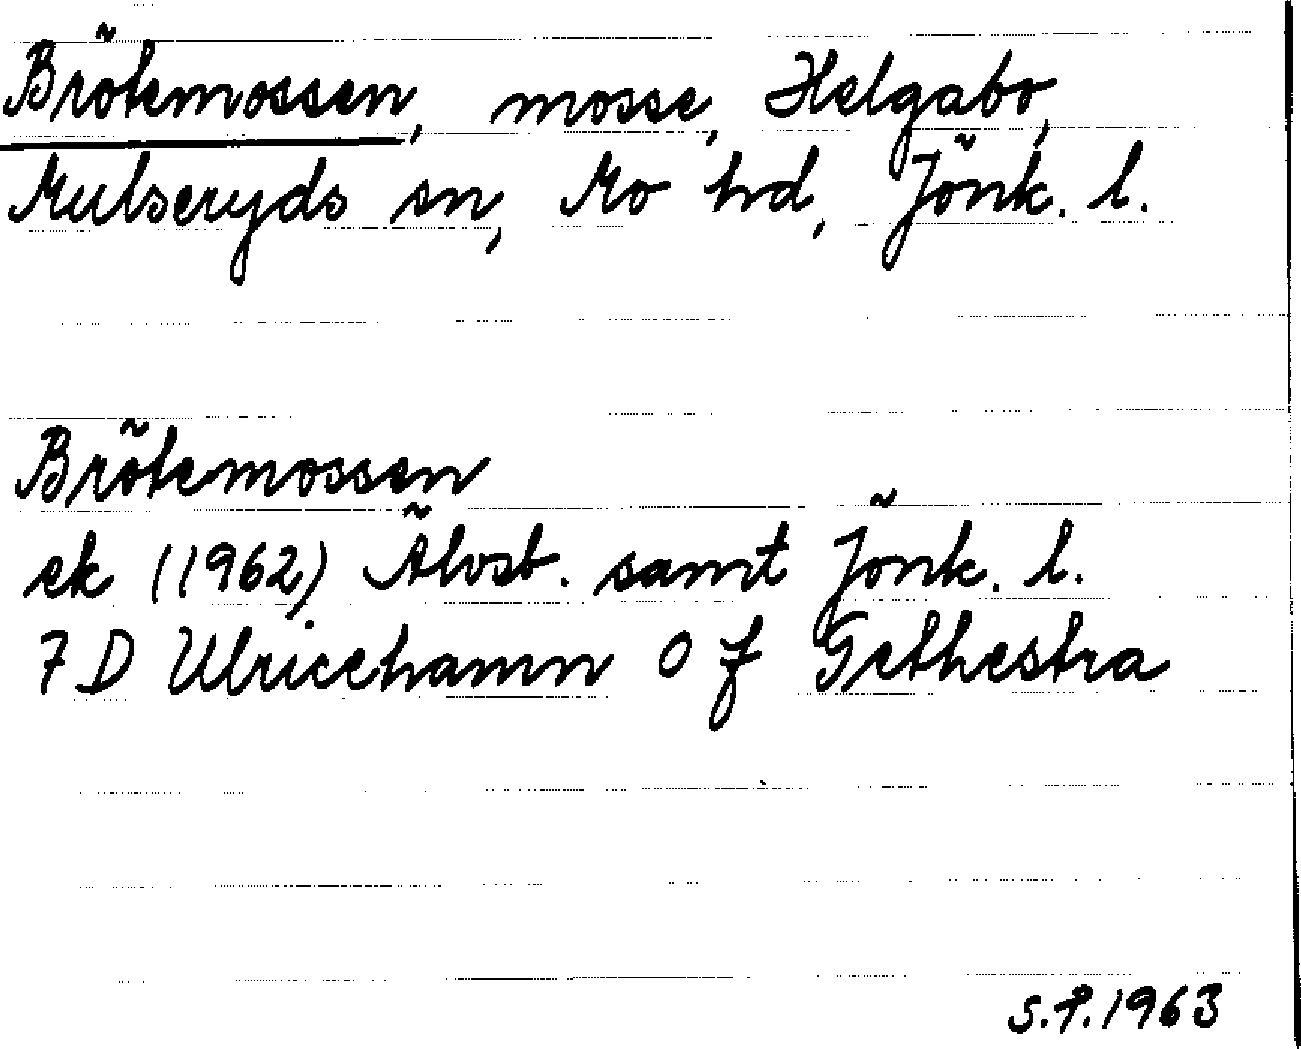 Brötemossen, mosse, Helgabo,
Mulseryds sn, Mo hd, Jönk. l.
Brötemossen
ek (1962) Älvsb. samt Jönk. l.
7 D Ulricehamn 0 f Grethestra
S.F. 1963